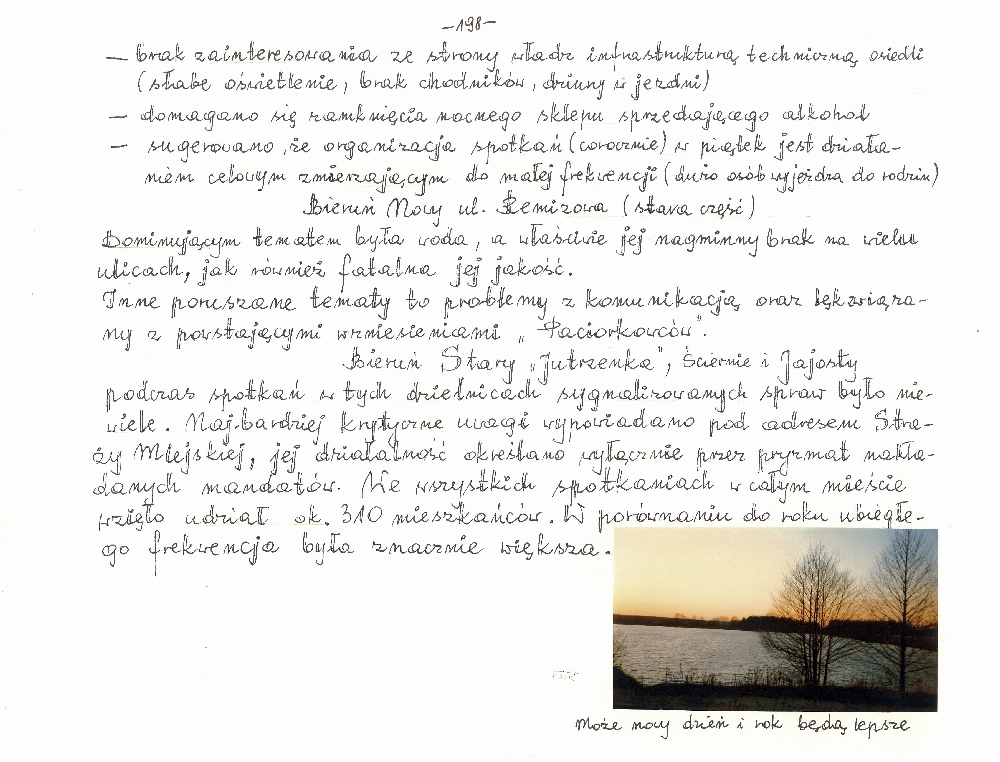 -198-
- brak zainteresowania ze strony władz infrastrukturą techniczną osiedli
(słabe oświetlenie, brak chodników, dziury w jezdni)
- domagano się zamknięcia nocnego sklepu sprzedającego alkohol
- sugerowano, że organizacja spotkań (corocznie) w piątek jest działa-
niem celowym zmierzającym do małej frekwencji (dużo osób wyjeżdża do rodzin)
Bieruń Nowy ul. Remizowa (stara część)
Dominującym tematem była woda, a właściwie jej nagminny brak na wielu
ulicach, jak również fatalna jej jakość.
Inne poruszane tematy to problemy z komunikacją oraz lęk związa-
ny z powstającymi wzniesieniami „Paciorkowców".
Bieruń Stary „Jutrzenka", Ściernie i Jajosty
podczas spotkań w tych dzielnicach sygnalizowanych spraw było nie-
wiele. Naj-bardziej krytyczne uwagi wypowiadano pod adresem Stra-
ży Miejskiej, jej działalność określano wyłącznie przez pryzmat nakła-
danych mandatów. We wszystkich spotkaniach w całym mieście
wzięło udział ok. 310 mieszkańców. W porównaniu do roku ubiegłe-
go frekwencja była znacznie większa.
Może nowy dzień i rok będą lepsze